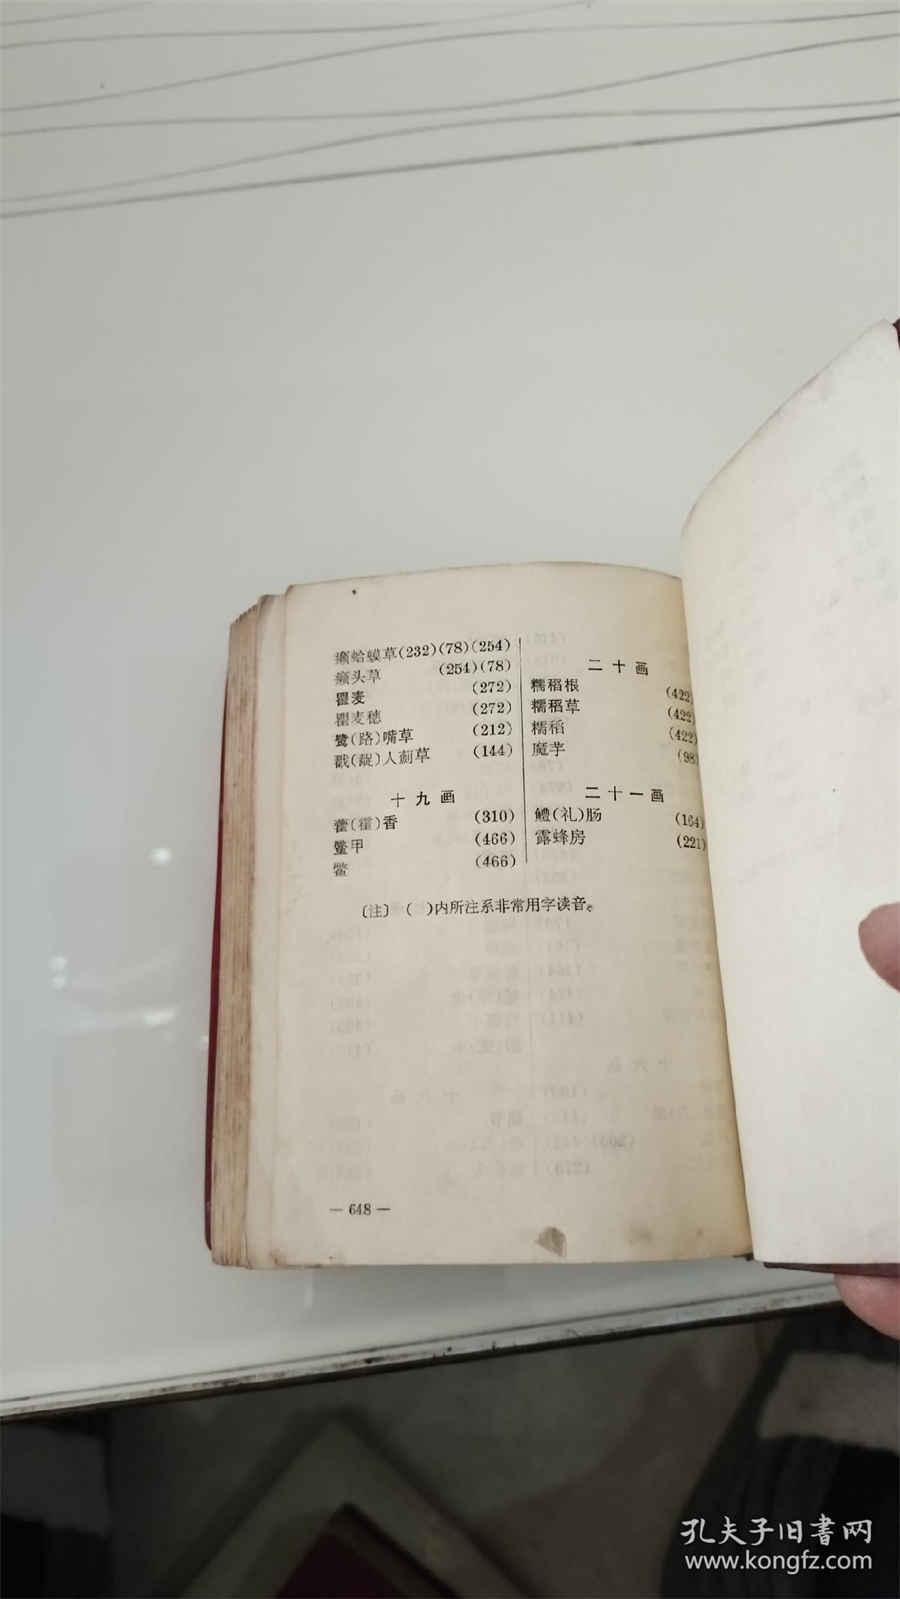 癞蛤蟆草(232)(78)(254)
癞头草 (254)(78)
瞿麦 (272)
瞿麦穗 (272)
鹭(路)嘴草 (212)
戳(戳)人蓟草 (144)
十九画
藿(霍)香 (310)
鳖甲 (466)
鳖 (466)
二十画
糯稻根 (422)
糯稻草 (422)
糯稻 (422)
魔芋 (98)
二十一画
鳢(礼)肠 (164)
露蜂房 (221)
〔注〕 ( )内所注系非常用字读音。
— 648 —
孔夫子旧书网
www.kongfz.com